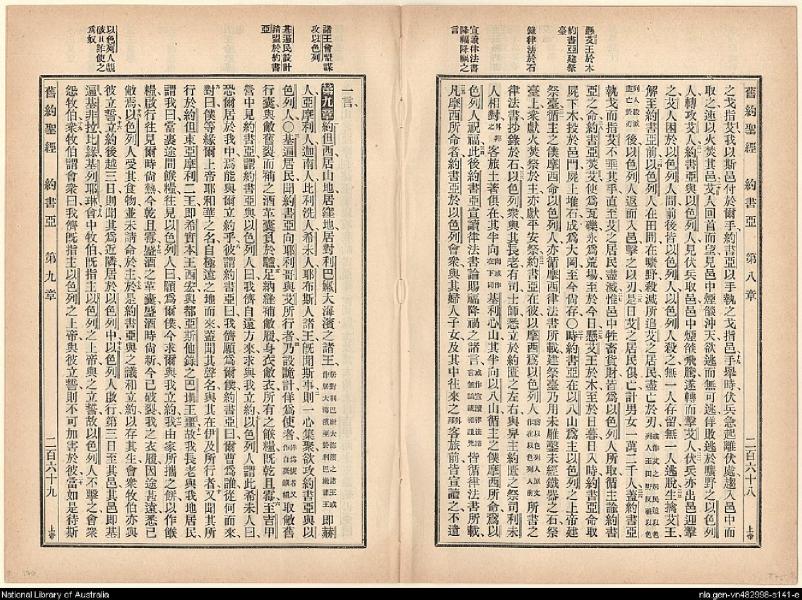 懸艾王於木
約書亞建祭
臺
錄律法於石
宣讀律法書
降福降禍之
言
舊約聖經 約書亞 第八章 二百六十八 上帝
之戈指艾我以斯邑付於爾手約書亞以手執之戈指邑手舉時伏兵急起離伏處趨入邑中而
取之速以火焚其邑艾人回首而望見邑中煙燄沖天欲逃而無可逃佯敗逃於曠野之以色列
人轉攻艾人約書亞與以色列人見伏兵取邑中煙燄飛騰遂轉而擊艾人伏兵亦出邑迎擊
之艾人困於以色列人間前後皆以色列人以色列人殺之無一人存留無一人逃脫生擒艾王
解至約書亞前以色列人在田間在曠野殺滅所追艾之居民盡亡於刃
後以色列人返而入邑擊之以刃是日艾之居民俱亡計男女一萬二千人蓋約書亞
執戈而指艾不垂其手直至艾之居民盡滅惟邑中牲畜貨財若爲以色列人所取循主諭約書
亞之命約書亞焚艾使爲瓦礫永爲荒場至於今日懸艾王於木至於日暮日入時約書亞命取
屍下木投於邑門屍上堆石成爲大岡至今尚存○時約書亞在以八山爲主以色列之上帝建
祭臺主之僕摩西命以色列人亦循摩西律法書所載建祭臺乃用未雕鑿未經鐵器之石祭
臺上衆獻火焚祭於主亦獻平安祭約書亞在彼以摩西爲以色列人所書之
律法書抄錄於石以色列衆與其長老有司士師悉立於約匱之左右與舁主約匱之祭司利未
人相對客旅土著俱在其半向基利心山其半向以八山循主僕摩西所命爲以
色列人祝福此後約書亞宣讀律法書論賜福降禍之諸言循律法書所載
凡摩西所命者約書亞於以色列會衆與其婦人子女及其中往來之客旅前皆宣讀之不遺
諸王會盟謀
攻以色列
基遍民設計
請盟於約書
亞
以色列人覺
彼
爲奴
一言
第九章約但西居山地居窪地居對利巴嫩大海濱之諸王即赫
人亞摩利人迦南人比利洗人希未人耶布斯人諸王旣聞斯事則一心集衆欲攻約書亞與以
色列人○基遍居民聞約書亞向耶利哥與艾所行者乃設詭計佯爲使者取敝舊
行囊與敝舊裂而補之酒革囊負於驢足納縫補敝履身衣敝衣所有之餱糧旣乾且霉至吉甲
營中見約書亞約書亞與以色列人曰我儕自遠方來求與我立約以色列人謂此希未人曰
恐爾居於我中焉能與爾立約乎彼謂約書亞曰我儕願爲爾僕約書亞曰爾曹爲誰從何而來
對曰僕等緣爾上帝耶和華之名自極遠之地而來蓋聞其聲名與其在伊及所行者又聞其所
行於約但東亞摩利二王即希實本王西宏與都亞斯他錄之巴珊王噩故我長老與我地居民
謂我曰當裹途間餱糧往見以色列人曰願爲爾僕今求爾與我立約我由家所攜之餅以作餱
糧啟行往見爾時尚熱今乾且霉盛酒之革囊盛酒時尚新今已破裂我之衣履因途甚遠悉已
敝焉以色列人受其食物並未請命於主於是約書亞與之議和立約以存其生會衆牧伯亦與
彼立誓立約後越三日則聞其爲近鄰居於以色列中以色列人啟行第三日至其邑其邑即基
遍基非拉比錄基列耶琳會中牧伯旣指主以色列之上帝與之立誓故以色列人不擊之會衆
怨牧伯衆牧伯謂會衆曰我儕旣指主以色列之上帝與彼立誓則不可加害於彼當如是待斯
舊約聖經 約書亞 第九章 二百六十九 上帝
National Library of Australia
nla.gen-vn482998-s141-e